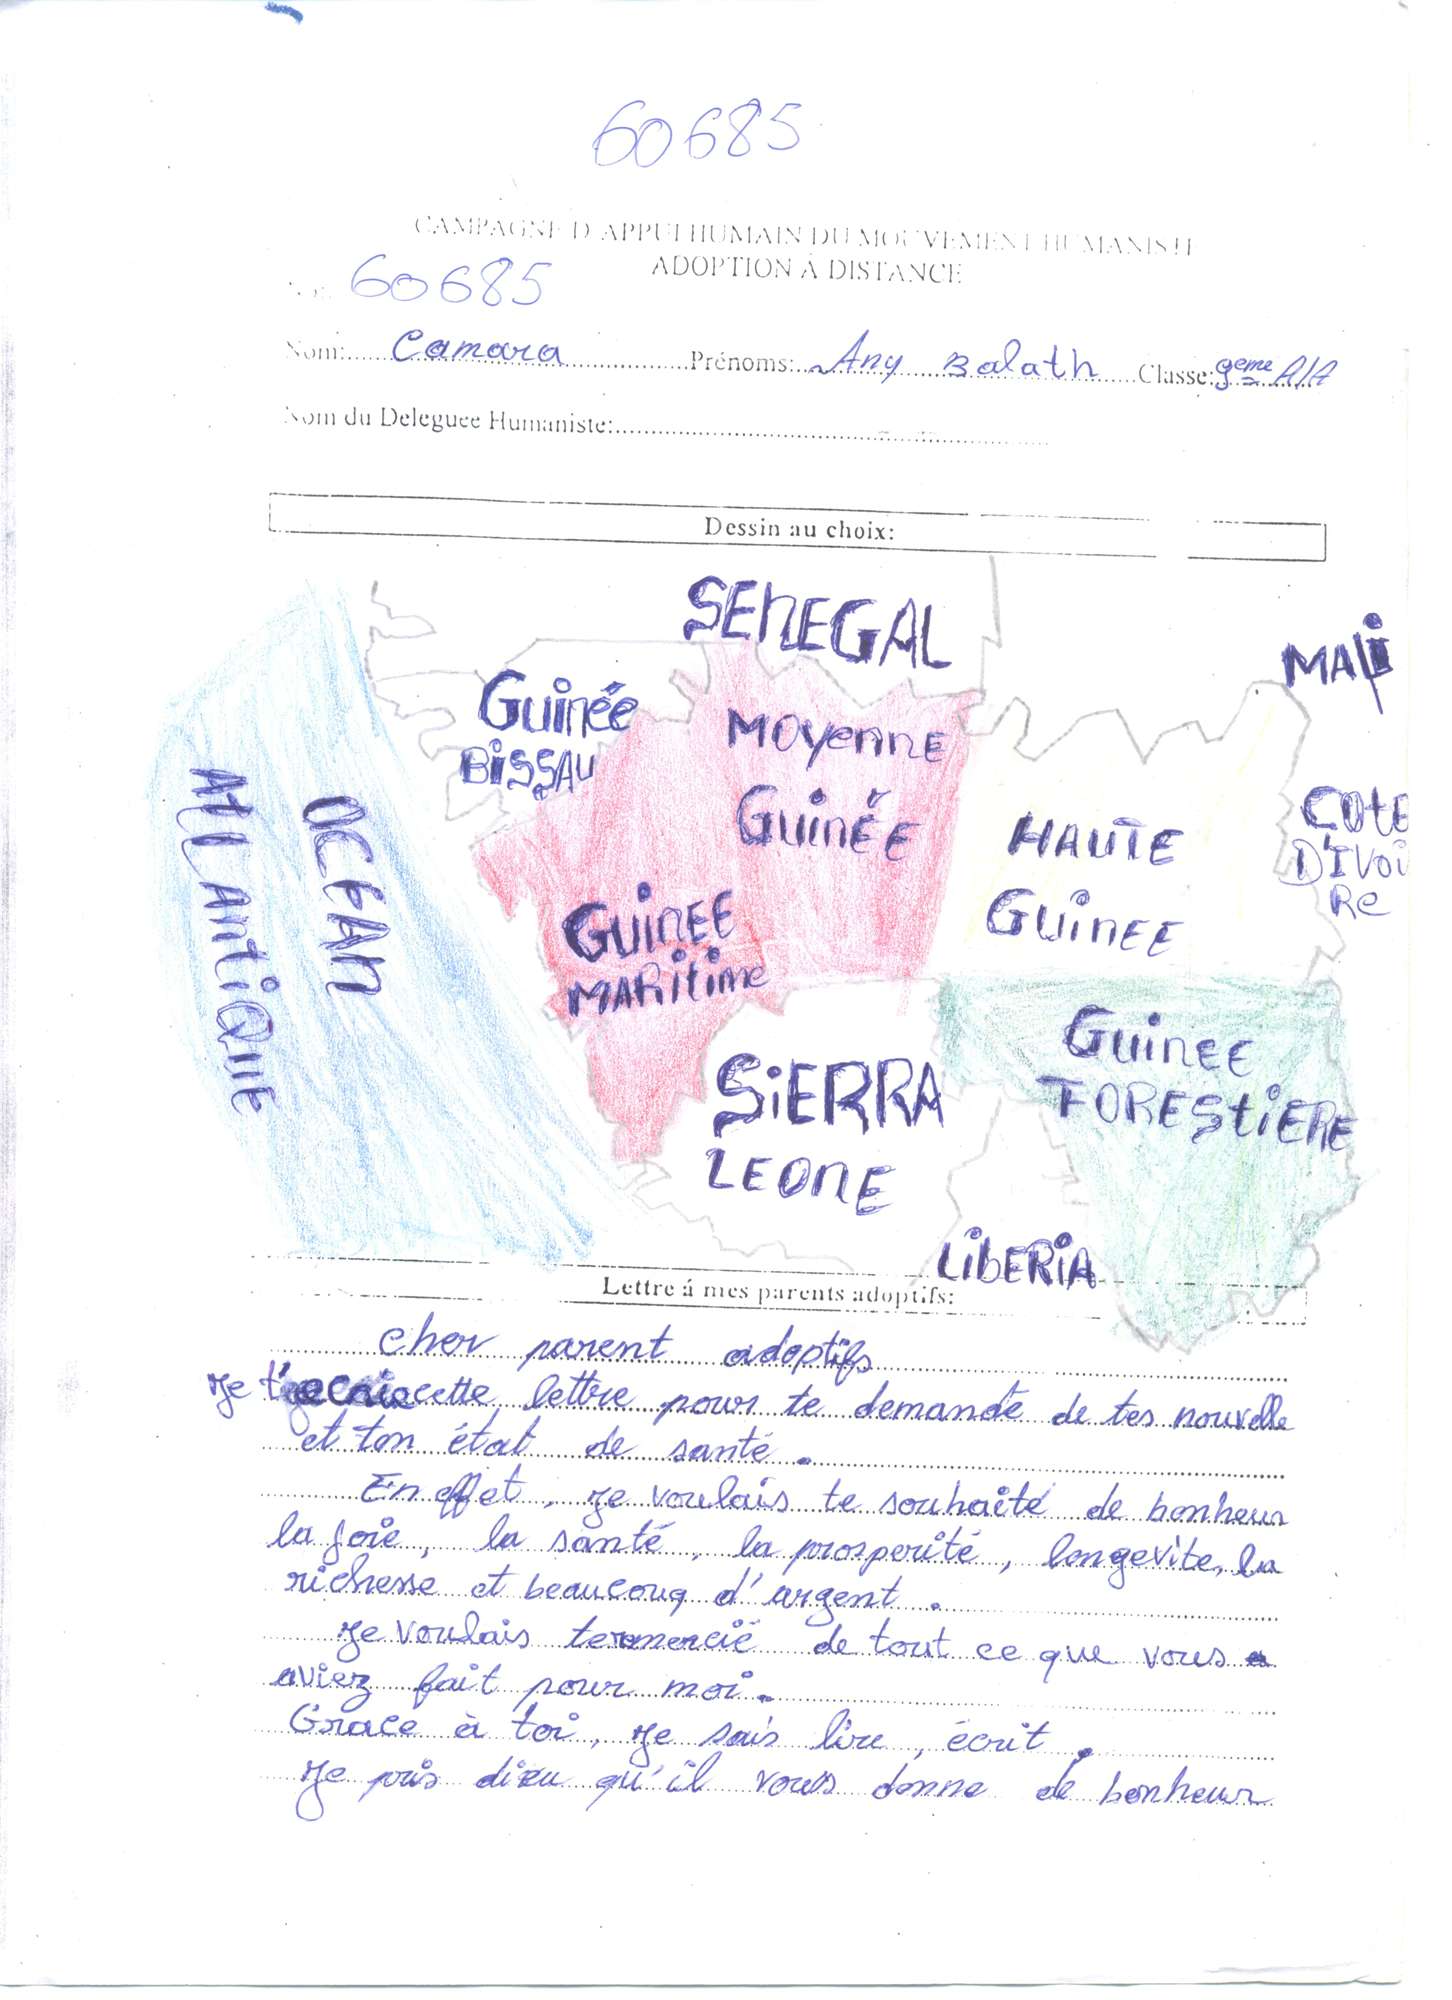 60685
CAMPAGNE D'APPUI HUMAIN DU MOUVEMENT HUMANISTE
ADOPTION Á DISTANCE
60685
Nom: Camara Prénoms: Any Balath Classe: 9eme A/A
Nom du Deleguee Humaniste:
Dessin au choix:
SENEGAL
MALI
Guinée
BISSAU
MOYENNE
Guinée
OCEAN
AtLAntiQUE
HAUTE
GUINEE
COtE
D'IVOI
RE
GUINEE
MARitime
GUINEE
FORESTIERE
SiERRA
LEONE
LibERIA
Lettre á mes parents adoptifs:
cher parent adoptifs
Je t'ecrie cette lettre pour te demandé de tes nouvelle
et ton état de santé.
En effet, je voulais te souhaité de bonheur
la joie, la santé, la prosperité, longevite, la
richesse et beaucouq d'argent.
Je voulais teremercié de tout ce que vous
aviez fait pour moi.
Grace à toi, je sais lire, écrit.
Je pris dieu qu'il vous donne de bonheur